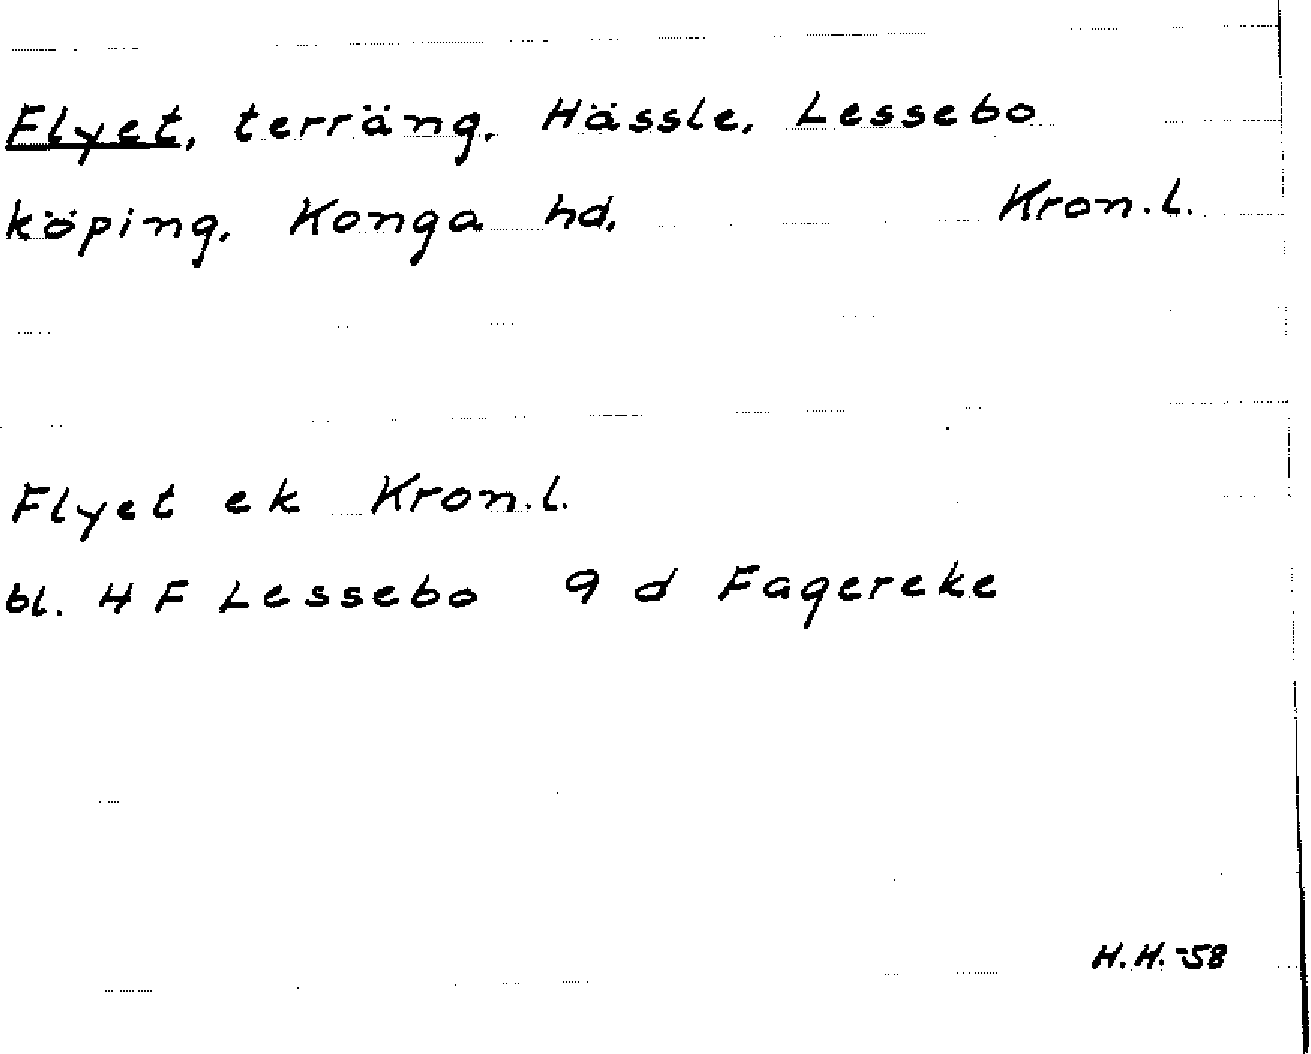 Flyet, terräng, Hässle, Lessebo
köping, Konga hd, Kron.l.
Flyet ek Kron.l.
bl. 4 F Lessebo 9 d Fagereke
H.H.-58